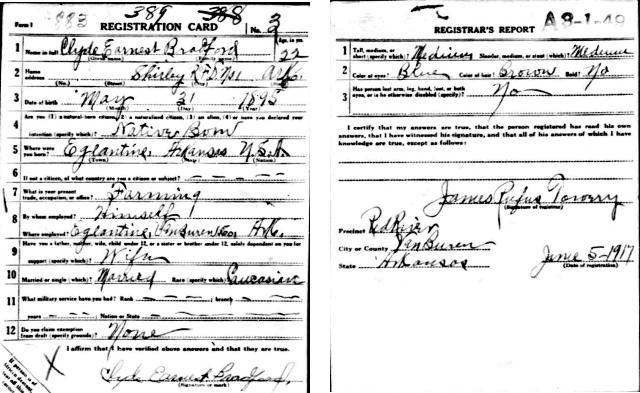 Form 1 383 389 388 No. 3
REGISTRATION CARD
1 Name in full Clyde Earnest Bradford Age, in yrs. 22
(Given name) (Family name)
2 Home address Shirley R.F.D. No 1 Ark.
(No.) (Street) (City) (State)
3 Date of birth May 31 1895
(Month) (Day) (Year)
4 Are you (1) a natural-born citizen, (2) a naturalized citizen, (3) an alien, (4) or have you declared your
intention (specify which)? Native Born
5 Where were you born? Eglantine, Arkansas U.S.A.
(Town) (State) (Nation)
6 If not a citizen, of what country are you a citizen or subject?
7 What is your present trade, occupation, or office? Farming
8 By whom employed? Himself
Where employed? Eglantine, Van Buren Co. Ark.
9 Have you a father, mother, wife, child under 12, or a sister or brother under 12, solely dependent on you for
support (specify which)? Wife
10 Married or single (which)? Married Race (specify which)? Caucasian
11 What military service have you had? Rank ; branch
years ; Nation or State
12 Do you claim exemption from draft (specify grounds)? None
I affirm that I have verified above answers and that they are true.
X Clyde Earnest Bradford.
(Signature or mark)
If person is of
REGISTRAR'S REPORT A 3-1-40
1 Tall, medium, or short (specify which)? Medium Slender, medium, or stout (which)? Medium
2 Color of eyes? Blue Color of hair? Brown Bald? No
3 Has person lost arm, leg, hand, foot, or both
eyes, or is he otherwise disabled (specify)? No
I certify that my answers are true, that the person registered has read his own
answers, that I have witnessed his signature, and that all of his answers of which I have
knowledge are true, except as follows:
James Rufus
(Signature of registrar)
Precinct Red River
City or County Van Buren
State Arkansas June 5-1917
(Date of registration)